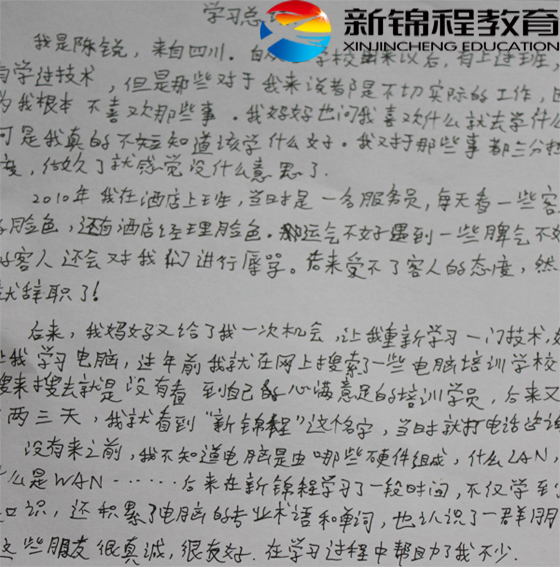 学习总
新锦程教育
XINJINCHENG EDUCATION
我是陈锐，来自四川。自 学校出来以后，有上过班，
有学过技术，但是那些对于我来说都是不切实际的工作，因
为我根本不喜欢那些事。我妈妈也问我喜欢什么就去学什么
可是我真的不知道该学什么好。我对于那些事都三分
度，做久了就感觉没什么意思了．
2010年我在酒店上班，当时是一名服务员，每天看一些客
脸色，还有酒店经理脸色．那运气不好遇到一些脾气不好
的客人还会对我们进行辱骂。后来受不了客人的态度，然
就辞职了！
后来，我妈妈又给了我一次机会，让我重新学习一门技术，
让我学习电脑，过年前我就在网上搜索了一些电脑培训学校
搜来搜去就是没有看到自己的心满意足的培训学员，后来又
两三天，我就看到“新锦程”这个名字，当时就打电话咨询
没有来之前，我不知道电脑是由哪些硬件组成，什么LAN，
什么是WAN……后来在新锦程学习了一段时间，不仅学到
知识，还积累了电脑的专业术语和单词，也认识了一群朋
这些朋友很真诚，很友好．在学习过程中帮助了我不少．